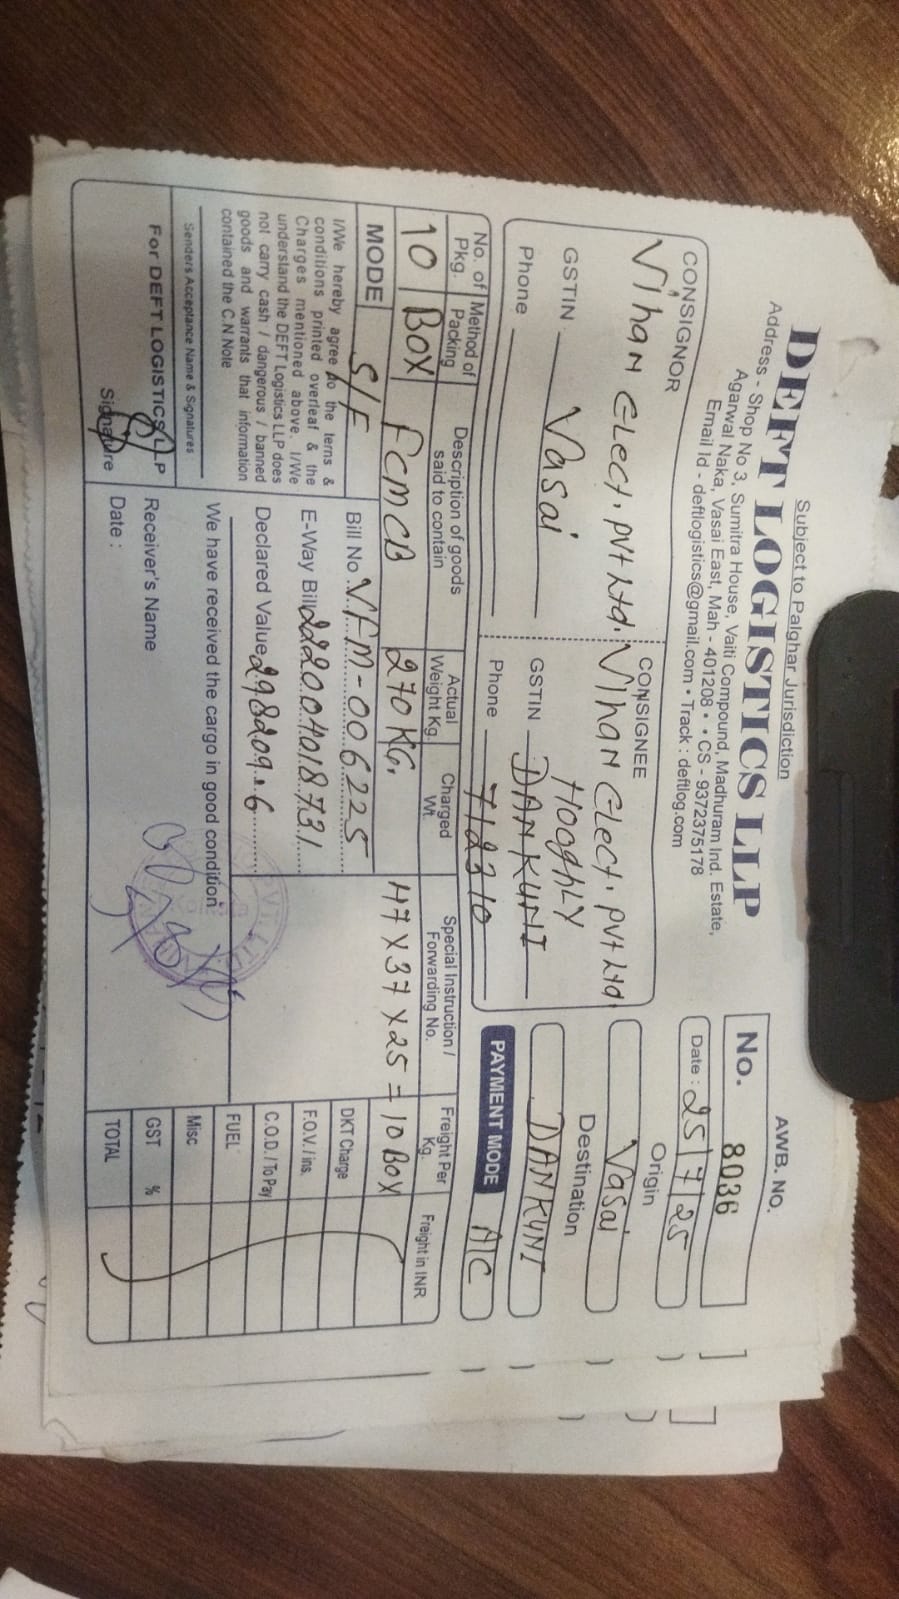 Subject to Palghar Jurisdiction
DEFT LOGISTICS LLP
Address - Shop No 3, Sumitra House, Vaiti Compound, Madhuram Ind. Estate,
Agarwal Naka, Vasai East, Mah - 401208 • CS - 9372375178
Email Id - deftlogistics@gmail.com • Track : deftlog.com
AWB. NO.
No. 8036
Date : 25/7/25
CONSIGNOR
Vihan Elect. Pvt Ltd.
GSTIN Vasai
Phone
CONSIGNEE
Vihan Elect. Pvt Ltd
HOOGHLY
GSTIN DANKUNI
Phone 712310
Origin
Vasai
Destination
DANKUNI
PAYMENT MODE A/C
No. of Pkg. Method of Packing Description of goods said to contain Actual Weight Kg. Charged Wt. Special Instruction / Forwarding No. Freight Per Kg. Freight in INR
10 BOX FCMCB 270 KG. 47 x 37 x 25 = 10 BOX
MODE S/F
Bill No. VFM-006225
E-Way Bill 222004018731
Declared Value 298209.6
I/We hereby agree to the terns &
conditions printed overleaf & the
Charges mentioned above. I/We
understand the DEFT Logistics LLP does
not carry cash / dangerous / banned
goods and warrants that information
contained the C.N Note
Senders Acceptance Name & Signatures
For DEFT LOGISTICS LLP
Signature
We have received the cargo in good condition
Receiver's Name
Date :
DKT Charge
F.O.V. / ins.
C.O.D. / To Pay
FUEL
Misc
GST %
TOTAL